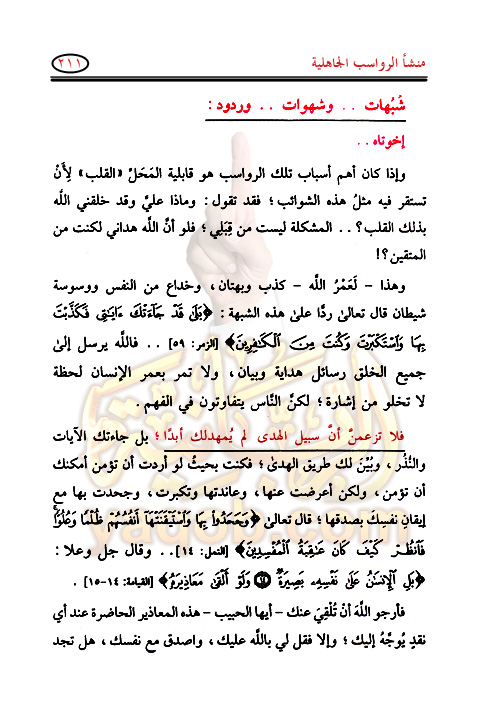 منشأ الرواسب الجاهلية
٢١١
شُبُهات . . وشهوات . . وردود :
إخوتاه . .
وإذا كان أهم أسباب تلك الرواسب هو قابلية المَحَلِّ «القلب» لِأَنْ
تستقر فيه مثلُ هذه الشوائب ؛ فقد تقول : وماذا عليَّ وقد خلقني اللَّه
بذلك القلب؟ . . المشكلة ليست من قِبَلِي ؛ فلو أنَّ اللَّه هداني لكنت من
المتقين؟!
وهذا – لَعَمْرُ اللَّه – كذب وبهتان، وخداع من النفس ووسوسة
شيطان قال تعالى ردًّا على هذه الشبهة : ﴿بَلَىٰ قَدْ جَآءَتْكَ ءَايَـٰتِى فَكَذَّبْتَ
بِهَا وَٱسْتَكْبَرْتَ وَكُنتَ مِنَ ٱلْكَـٰفِرِينَ﴾ [الزمر: ٥٩] . . فاللَّه يرسل إلى
جميع الخلق رسائل هداية وبيان، ولا تمر بعمر الإنسان لحظة
لا تخلو من إشارة ؛ لكنَّ النَّاس يتفاوتون في الفهم .
فلا تزعمنَّ أنَّ سبيل الهدى لم يُمهدلك أبدًا ؛ بل جاءتك الآيات
والنُّذُر، وبُيِّنَ لك طريق الهدى ؛ فكنت بحيثُ لو أردت أن تؤمن أمكنك
أن تؤمن، ولكن أعرضت عنها، وعاندتها وتكبرت، وجحدت بها مع
إيقانِ نفسِكَ بصدقها ؛ قال تعالى ﴿وَجَحَدُوا۟ بِهَا وَٱسْتَيْقَنَتْهَآ أَنفُسُهُمْ ظُلْمًا وَعُلُوًّا ۚ
فَٱنظُرْ كَيْفَ كَانَ عَـٰقِبَةُ ٱلْمُفْسِدِينَ﴾ [النمل: ١٤] . . وقال جل وعلا :
﴿بَلِ ٱلْإِنسَـٰنُ عَلَىٰ نَفْسِهِۦ بَصِيرَةٌ ١٤ وَلَوْ أَلْقَىٰ مَعَاذِيرَهُۥ﴾ [القيامة: ١٤-١٥] .
فأرجو اللَّهَ أنْ تُلْقِيَ عنك – أيها الحبيب – هذه المعاذير الحاضرة عند أي
نقدٍ يُوجَّهُ إليك ؛ وإلا فقل لي باللَّه عليك، واصدق مع نفسك، هل تجد